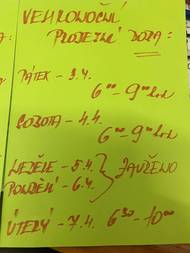 VELIKONOČNÍ
PRODEJNÍ DOBA:
PÁTEK - 3.4.
6⁰⁰ - 9⁰⁰ hod
SOBOTA - 4.4.
6⁰⁰ - 9⁰⁰ hod
NEDĚLE - 5.4.
PONDĚLÍ - 6.4. } ZAVŘENO
ÚTERÝ - 7.4. 6³⁰ - 10⁰⁰